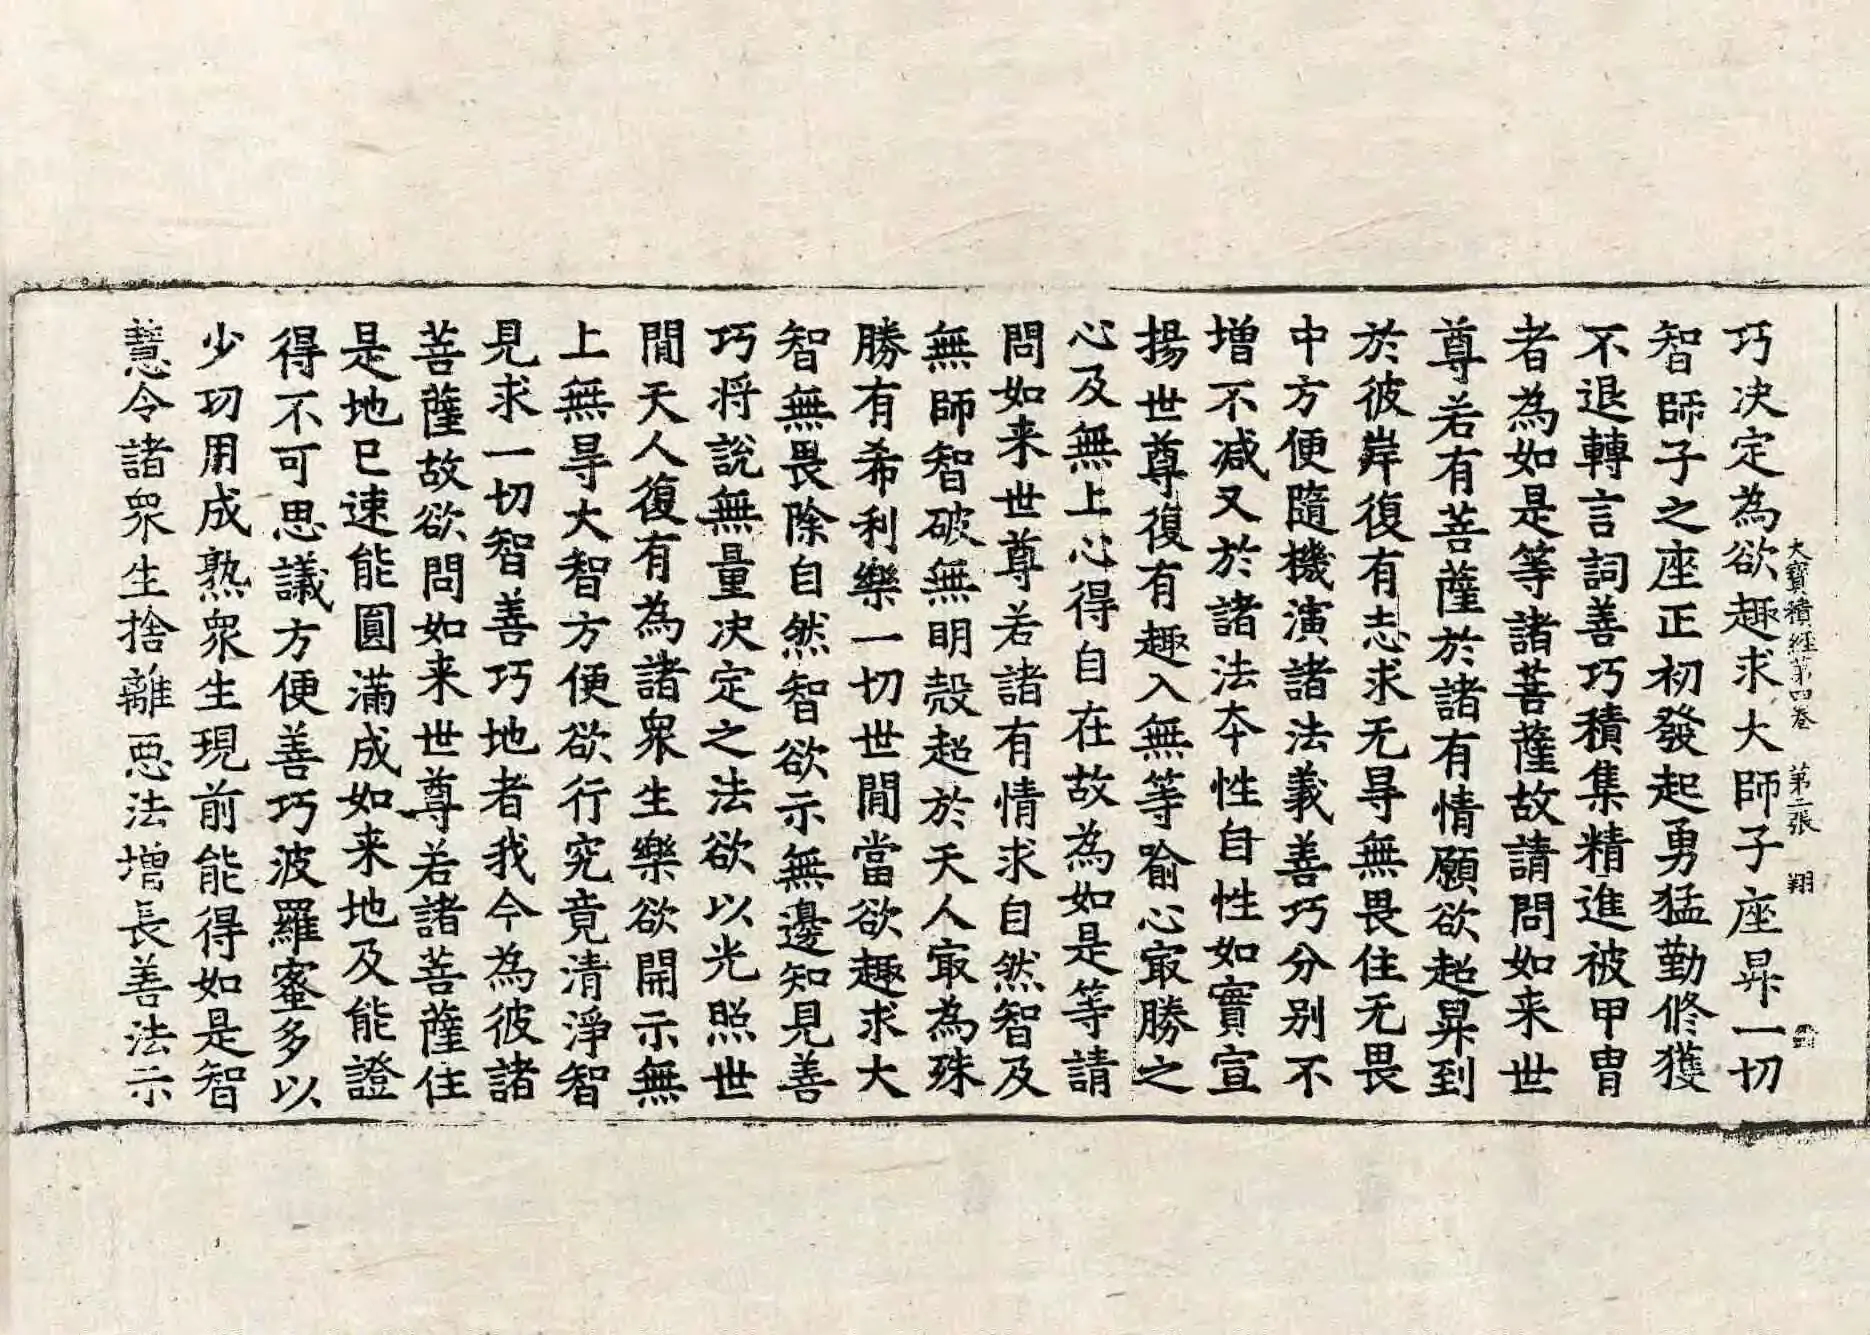 大寶積經第四卷 第二張 翔
巧決定為欲趣求大師子座昇一切
智師子之座正初發起勇猛勤修獲
不退轉言詞善巧積集精進被甲冑
者為如是等諸菩薩故請問如来世
尊若有菩薩於諸有情願欲超昇到
於彼岸復有志求无㝵無畏住无畏
中方便隨機演諸法義善巧分别不
增不減又於諸法本性自性如實宣
揚世尊復有趣入無等喻心㝡勝之
心及無上心得自在故為如是等請
問如来世尊若諸有情求自然智及
無師智破無明㲉超於天人㝡為殊
勝有希利樂一切世閒當欲趣求大
智無畏除自然智欲示無邊知見善
巧將說無量決定之法欲以光照世
閒天人復有為諸衆生樂欲開示無
上無㝵大智方便欲行究竟清淨智
見求一切智善巧地者我今為彼諸
菩薩故欲問如来世尊若諸菩薩住
是地已速能圓滿成如来地及能證
得不可思議方便善巧波羅蜜多以
少功用成熟衆生現前能得如是智
慧令諸衆生捨離惡法增長善法示